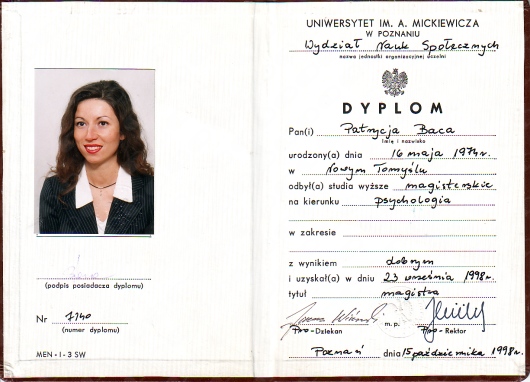 (podpis posiadacza dyplomu)
Nr 7140
(numer dyplomu)
MEN - I - 3 SW
UNIWERSYTET IM. A. MICKIEWICZA
W POZNANIU
Wydział Nauk Społecznych
nazwa jednostki organizacyjnej uczelni
DYPLOM
Pan(i) Patrycja Baca
imię i nazwisko
urodzony(a) dnia 16 maja 1974 r.
w Nowym Tomyślu
odbył(a) studia wyższe magisterskie
na kierunku psychologia
w zakresie
z wynikiem dobrym
i uzyskał(a) w dniu 23 września 1998 r.
tytuł magistra
Pro-Dziekan m.p. Pro-Rektor
Poznań dnia 15 października 1998 r.